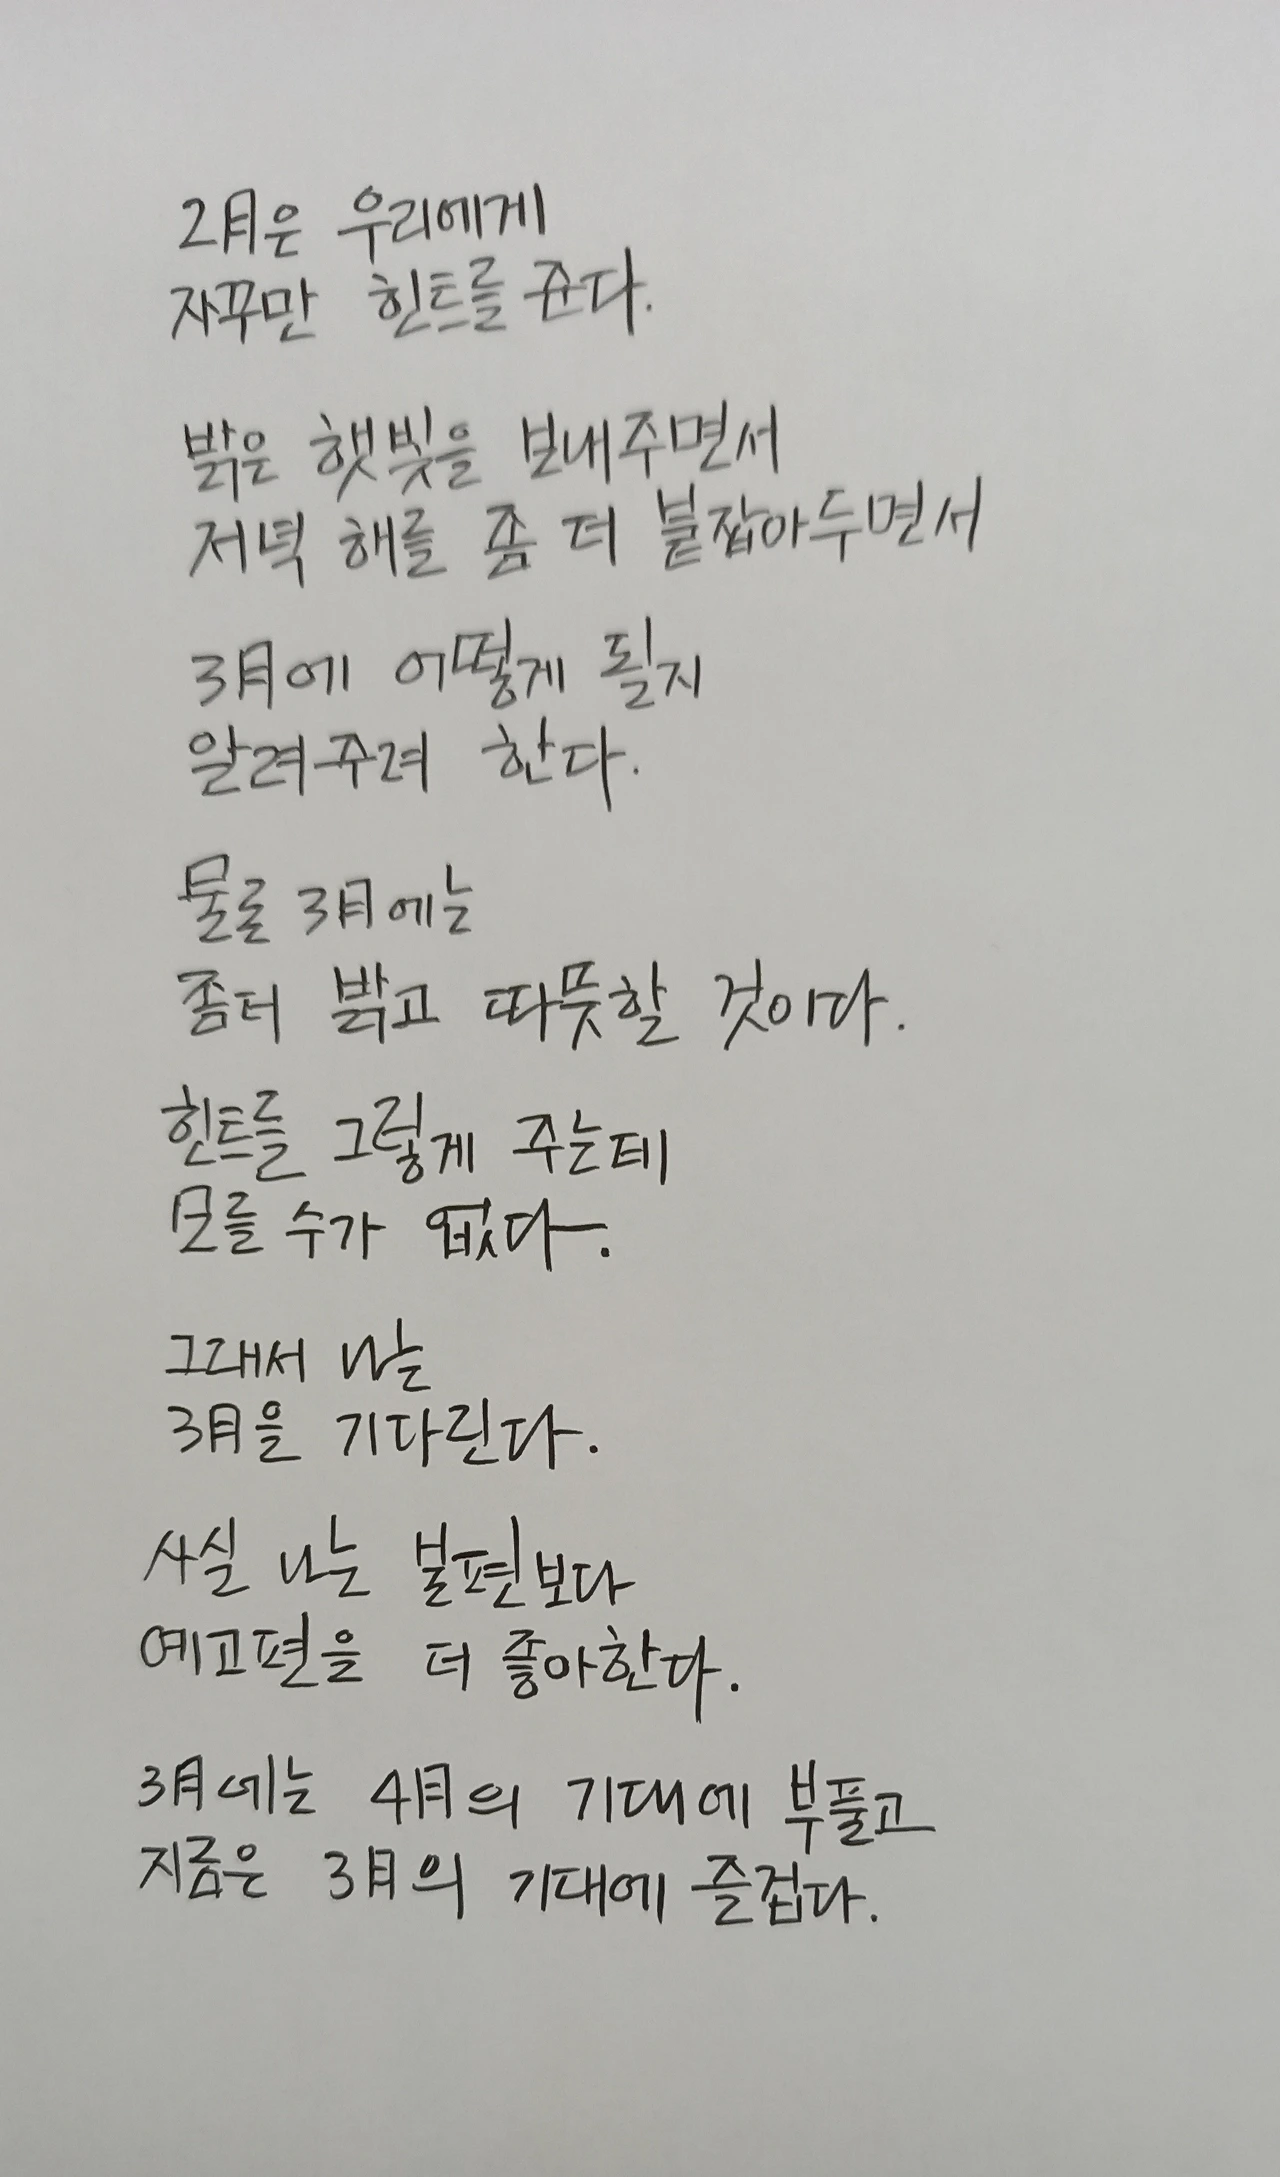 2月은 우리에게
자꾸만 힌트를 준다.
밝은 햇빛을 보내주면서
저녁 해를 좀 더 붙잡아두면서
3月에 어떻게 될지
알려주려 한다.
물론 3月에는
좀더 밝고 따뜻할 것이다.
힌트를 그렇게 주는데
모를 수가 없다.
그래서 나는
3月을 기다린다.
사실 나는 본편보다
예고편을 더 좋아한다.
3月에는 4月의 기대에 부풀고
지금은 3月의 기대에 즐겁다.